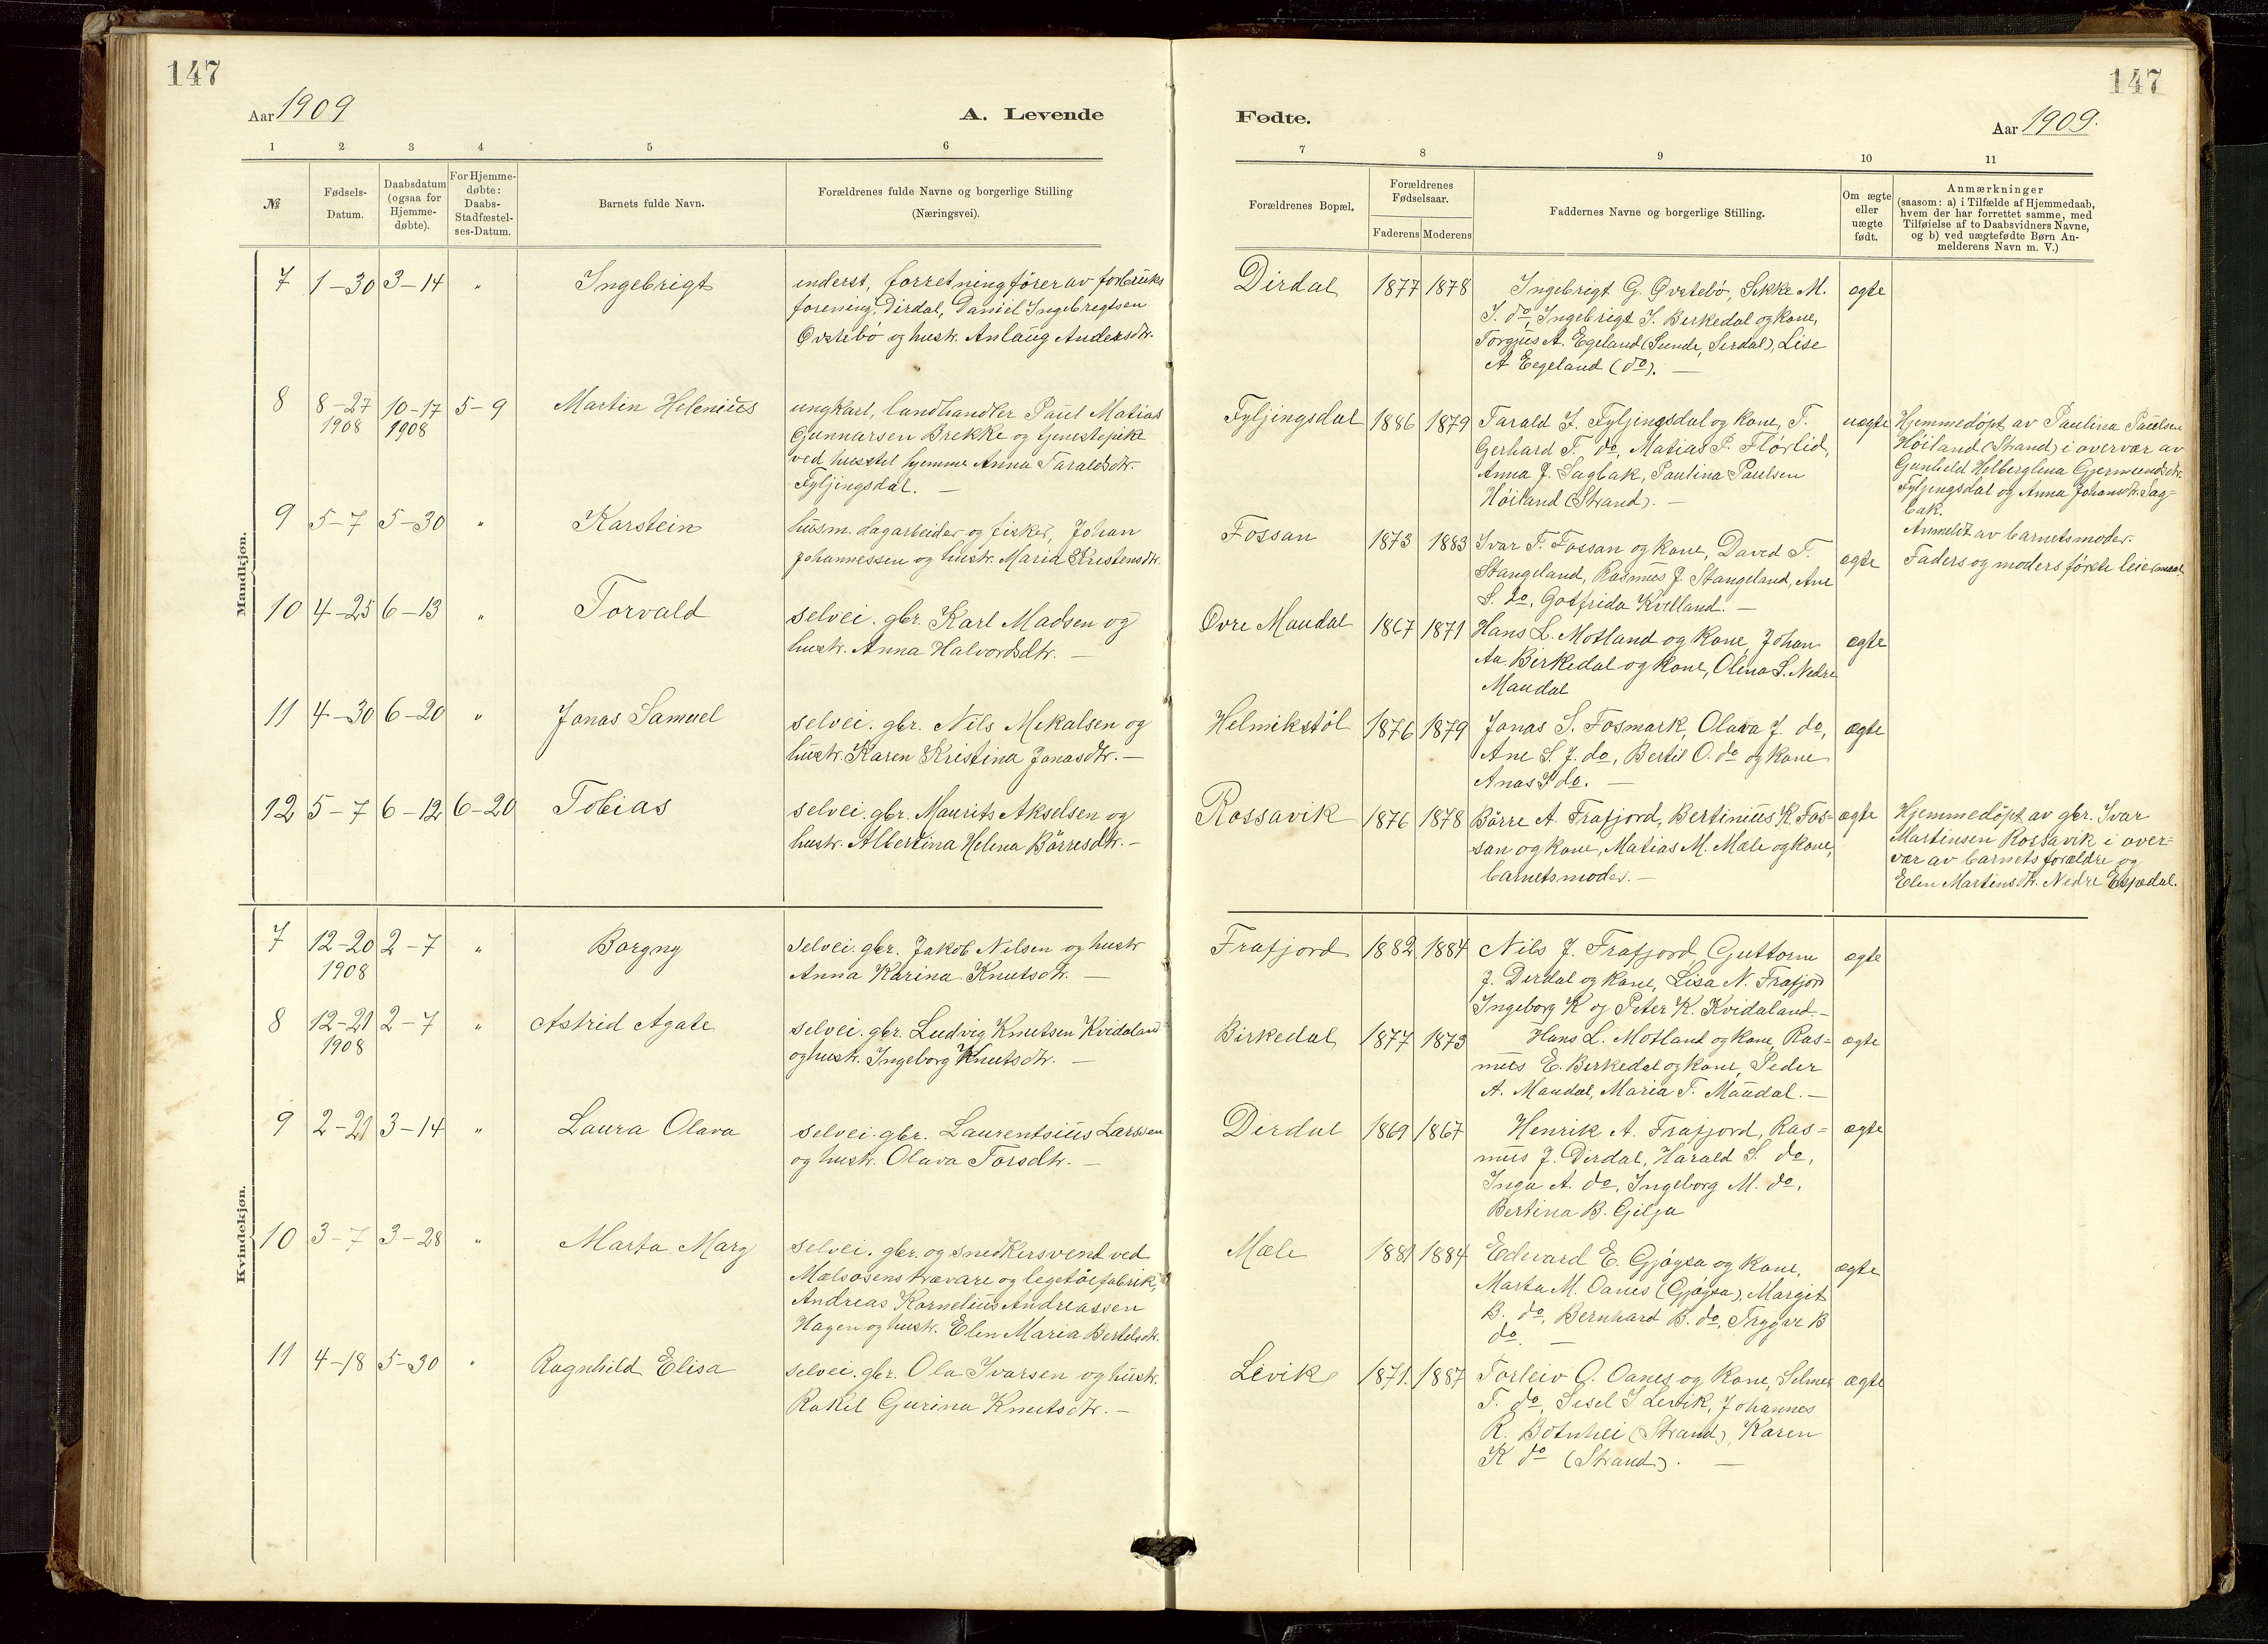 147
Aar 1909
A. Levende
1 2 3 4 5 6
№
Fødsels-
Datum.
Daabsdatum
(ogsaa for
Hjemme-
døbte).
For Hjemme-
døbte:
Daabs-
Stadfæstel-
ses-Datum.
Barnets fulde Navn.
Forældrenes fulde Navne og borgerlige Stilling
(Næringsvei).
Mandkjøn.
7 1-30 3-14 " Ingebrigt
inderst, forretningfører av forbruks
forening, Dirdal, Daniel Ingebregtsen
Øvstebö og hustr. Anlaug Andersdtr.
8 8-27 10-17 5-9 Martin Helenius
1908 1908
ungkarl, landhandler Paul Matias
Gunnarsen Brekke og tjenestepike
ved husstel hjemme Anna Taraldsdtr.
Fyljingsdal. —
9 5-7 5-30 " Karstein
husm. dagarbeider og fisker, Johan
Johannessen og hustr. Maria Kristensdtr.
10 4-25 6-13 " Torvald
selvei. gbr. Karl Madsen og
hustr. Anna Halvordsdtr. —
11 4-30 6-20 " Jonas Samuel
selvei. gbr. Nils Mikalsen og
hustr. Karen Kristina Jonasdtr. —
12 5-7 6-12 6-20 Tobias
selvei. gbr. Maurits Akselsen og
hustr. Albertina Helena Börresdtr. —
Kvindekjøn.
7 12-20 2-7 " Borgny
1908
selvei. gbr. Jakob Nilsen og hustr
Anna Karina Knutsdtr. —
8 12-21 2-7 " Astrid Agate
1908
selvei. gbr. Ludvig Knutsen Kvidaland
og hustr. Ingeborg Knutsdtr. —
9 2-21 3-14 " Laura Olava
selvei. gbr. Laurentsius Larssen
og hustr. Olava Torsdtr. —
10 3-7 3-28 " Marta Marg
selvei. gbr. og snedkersvend ved
Mælsosens trævare og legetöifabrik,
Andreas Kornelius Andreassen
Hagen og hustr. Elen Maria Bertelsdtr.
11 4-18 5-30 " Ragnhild Elisa
selvei. gbr. Ola Ivarsen og hustr.
Rakel Gurina Knutsdtr. —
147
Fødte.
Aar 1909.
7 8 9 10 11
Forældrenes Bopæl.
Forældrenes
Fødselsaar.
Faderens Moderens
Faddernes Navne og borgerlige Stilling.
Om ægte
eller
uægte
født.
Anmærkninger
(saasom: a) i Tilfælde af Hjemmedaab,
hvem der har forrettet samme, med
Tilføielse af to Daabsvidners Navne,
og b) ved uægtefødte Børn An-
melderens Navn m. V.)
Dirdal 1877 1878 Ingebrigt G. Øvstebö, Sikke M. ægte
I. do, Ingebrigt I. Birkedal og kone,
Torgjus A. Egeland (Sunde, Sirdal), Lise
A Eegeland (do). —
Fyljingsdal 1886 1879 Tarald I. Fyljingsdal og kone, T. uægte
Gerhard T. do, Matias P. Flørlid,
Anna J. Sagbak, Paulina Paulsen
Høiland (Strand). —
Hjemmedøpt av Paulina Paulsen
Høiland (Strand) i overvær av
Gunhild Helberglena Gjermundsdtr.
Fyljingsdal og Anna Johansdtr. Sag-
bak.
Anmeldt av barnets moder.
Faders og moders første leiermaal.
Fossan 1873 1883 Ivar T. Fossan og kone, David T. ægte
Stangeland, Rasmus J. Stangeland, Ane
S. do, Gotfrida Kvelland. —
Øvre Maudal 1867 1871 Hans L. Motland og kone, Johan ægte
Aa. Birkedal og kone, Olena S. Nedre
Maudal
Helmikstøl 1876 1879 Jonas S. Fosmark, Olava J. do, ægte
Ane S. J. do, Bertil O. do og kone
Anas S do. —
Rossavik 1876 1878 Börre A. Frafjord, Bertinius K Fos= ægte
san og kone, Matias M. Mæle og kone,
barnets moder. —
Hjemmedøpt av gbr. Ivar
Martinsen Rossavik i over=
vær av barnets forældre og
Elen Martinsdtr. Nedre Espedal.
Frafjord 1882 1884 Nils J. Frafjord, Guttorm ægte
J. Dirdal og kone, Lisa N. Frafjord
Ingeborg K og Peter K. Kvidaland. —
Birkedal 1877 1873 Hans L. Motland og kone, Ras= ægte
mus E. Birkedal og kone, Peder
A. Maudal, Maria T. Maudal. —
Dirdal 1869 1867 Henrik A. Frafjord, Ras= ægte
mus J. Dirdal, Harald S. do,
Inga A. do, Ingeborg M. do,
Bertina B. Gilja
Mæle 1881 1884 Edevard E. Gjøysa og kone, ægte
Marta M. Oanes (Gjøysa), Margit
B. do, Bernhard B. do, Trygve B
do —
Levik 1871. 1887 Torleiv O. Oanes og kone, Selmer ægte
T. do, Sisel I Levik, Johannes
R. Botnhei (Strand), Karen
K do (Strand). —